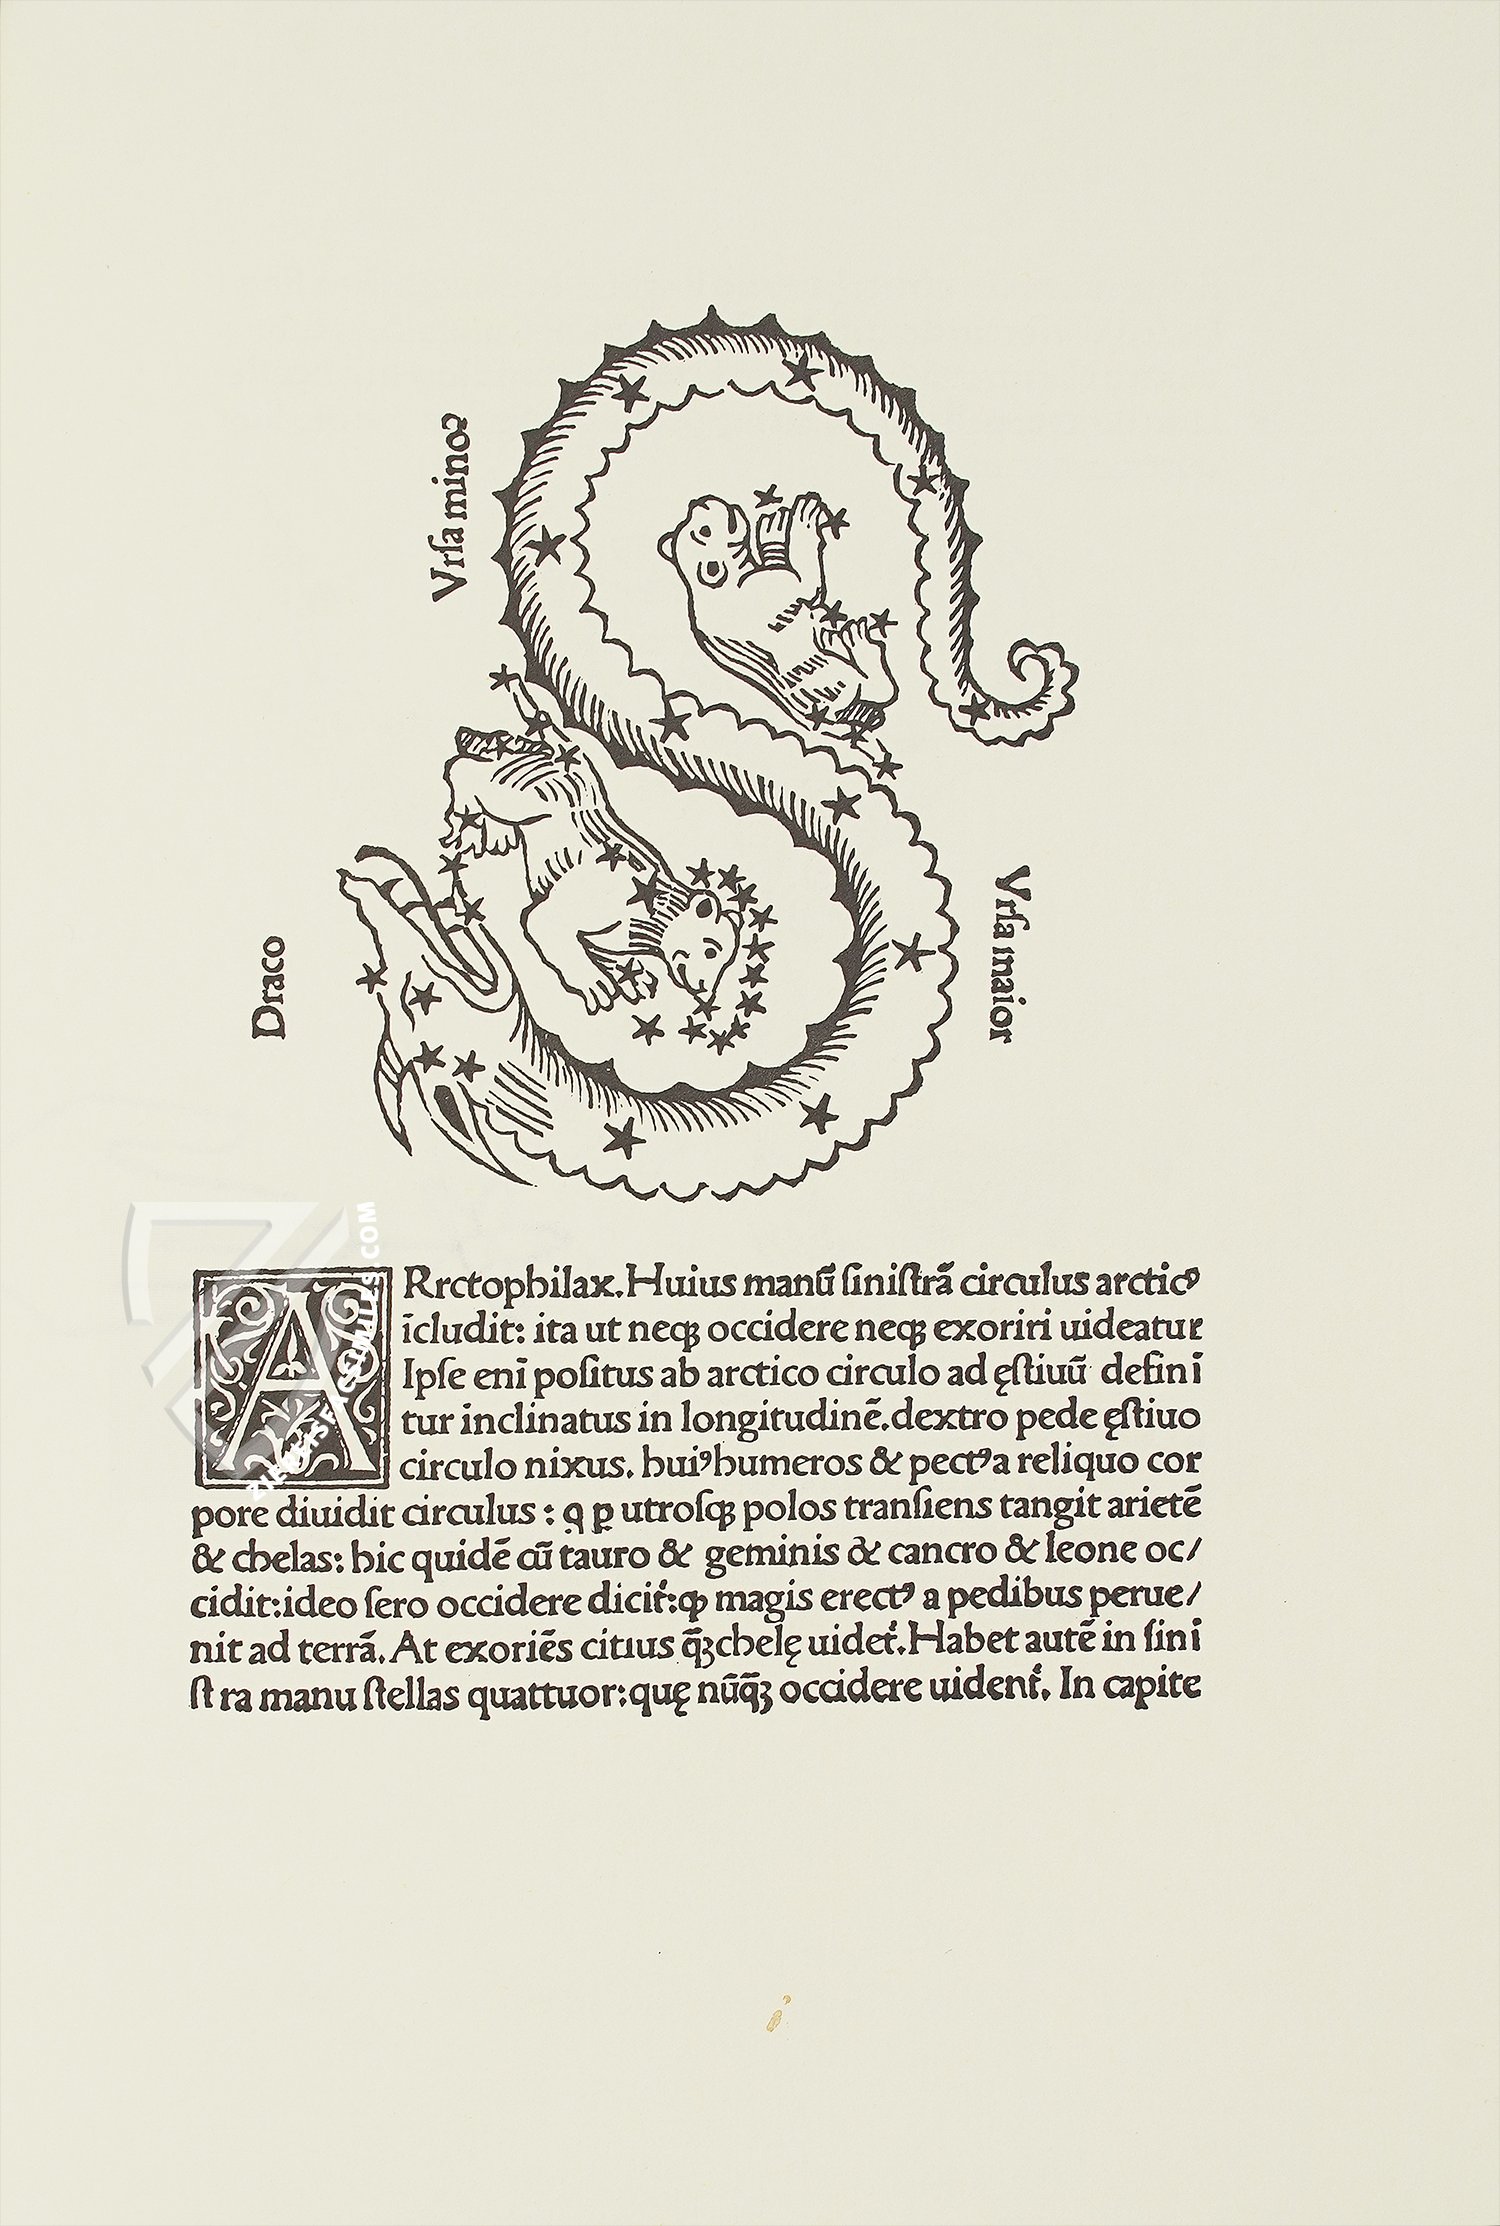 Vrſa minoꝛ
Vrſa maior
Draco
ARrctophilax. Huius manū ſiniſtrā circulus arcticꝰ
īcludit: ita ut neqꝫ occidere neqꝫ exoriri uideatur
Ipſe enī poſitus ab arctico circulo ad ęſtiuū defini
tur inclinatus in longitudinē. dextro pede ęſtiuo
circulo nixus. huiꝰ humeros & pectꝰ a reliquo cor
pore diuidit circulus : q ꝑ utroſqꝫ polos tranſiens tangit arietē
& chelas: hic quidē cū tauro & geminis & cancro & leone oc/
cidit: ideo ſero occidere dicit̃: ꝙ magis erectꝰ a pedibus perue/
nit ad terrā. At exoriēs citius q̄ꝫ chelę uidet̃. Habet autē in ſini
ſtra manu ſtellas quattuor: quę nūq̄ꝫ occidere uident̃. In capite
ZIEREIS FACSIMILES.COM